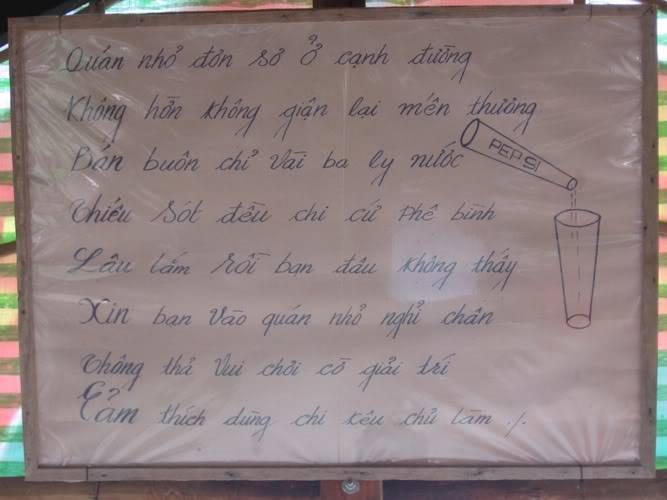 Quán nhỏ đơn sơ ở cạnh đường
Không hờn không giận lại mến thương
Bán buôn chỉ vài ba ly nước
PEPSI
Thiếu sót đều chi cứ phê bình
Lâu lắm rồi bạn đâu không thấy
Xin bạn vào quán nhỏ nghỉ chân
Thông thả vui chơi cờ giải trí
Cảm thích dùng chi kêu chủ làm ./.